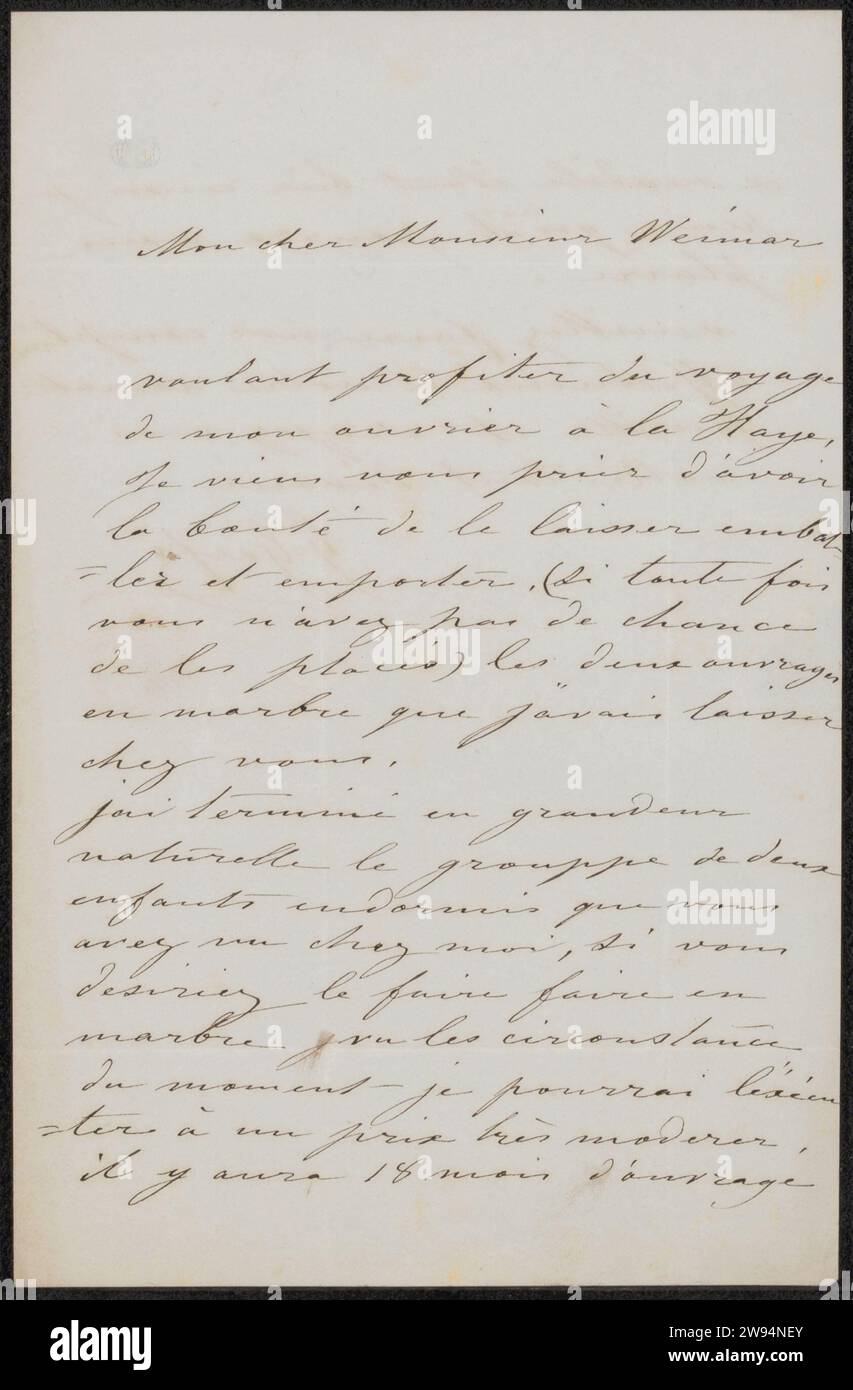 Mon cher Monsieur Weimar
voulant profiter du voyage
de mon ouvrier à la Haye,
Je viens vous prier d'avoir
la bonté de le laisser embal-
=ler et emporter, (si toute fois
vous n'avez pas de chance
de les placés) les deux ouvrages
en marbre que j'avais laisser
chez vous.
j'ai terminé en grandeur
naturelle le grouppe de deux
enfants endormis que vous
avez vu chez moi, si vous
desiriez le faire faire en
marbre, vu les circonstance
du moment je pourrai l'éxécu
=ter à un prix très moderer,
il y aura 18 mois d'ouvrage
alamy
alamy
Image ID: 2W94NEY
www.alamy.com